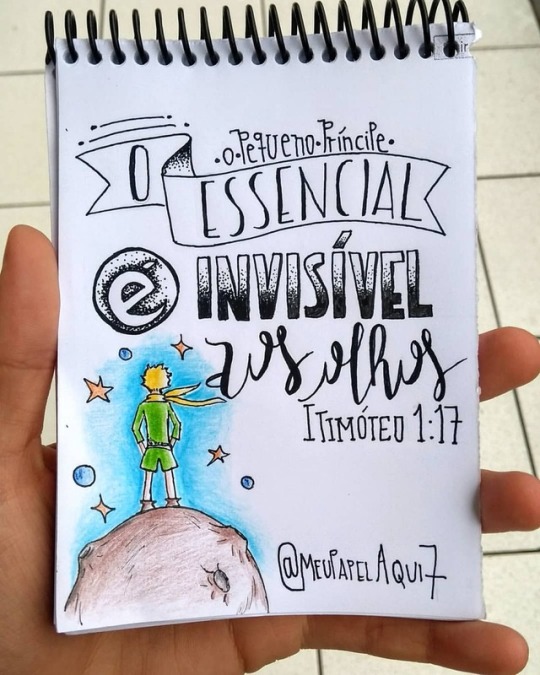 .O.PEQUENO.PRÍNCIPE.
O ESSENCIAL
é INVISÍVEL
aos olhos
I TIMÓTEO 1:17
@MEUPAPELAQUI7